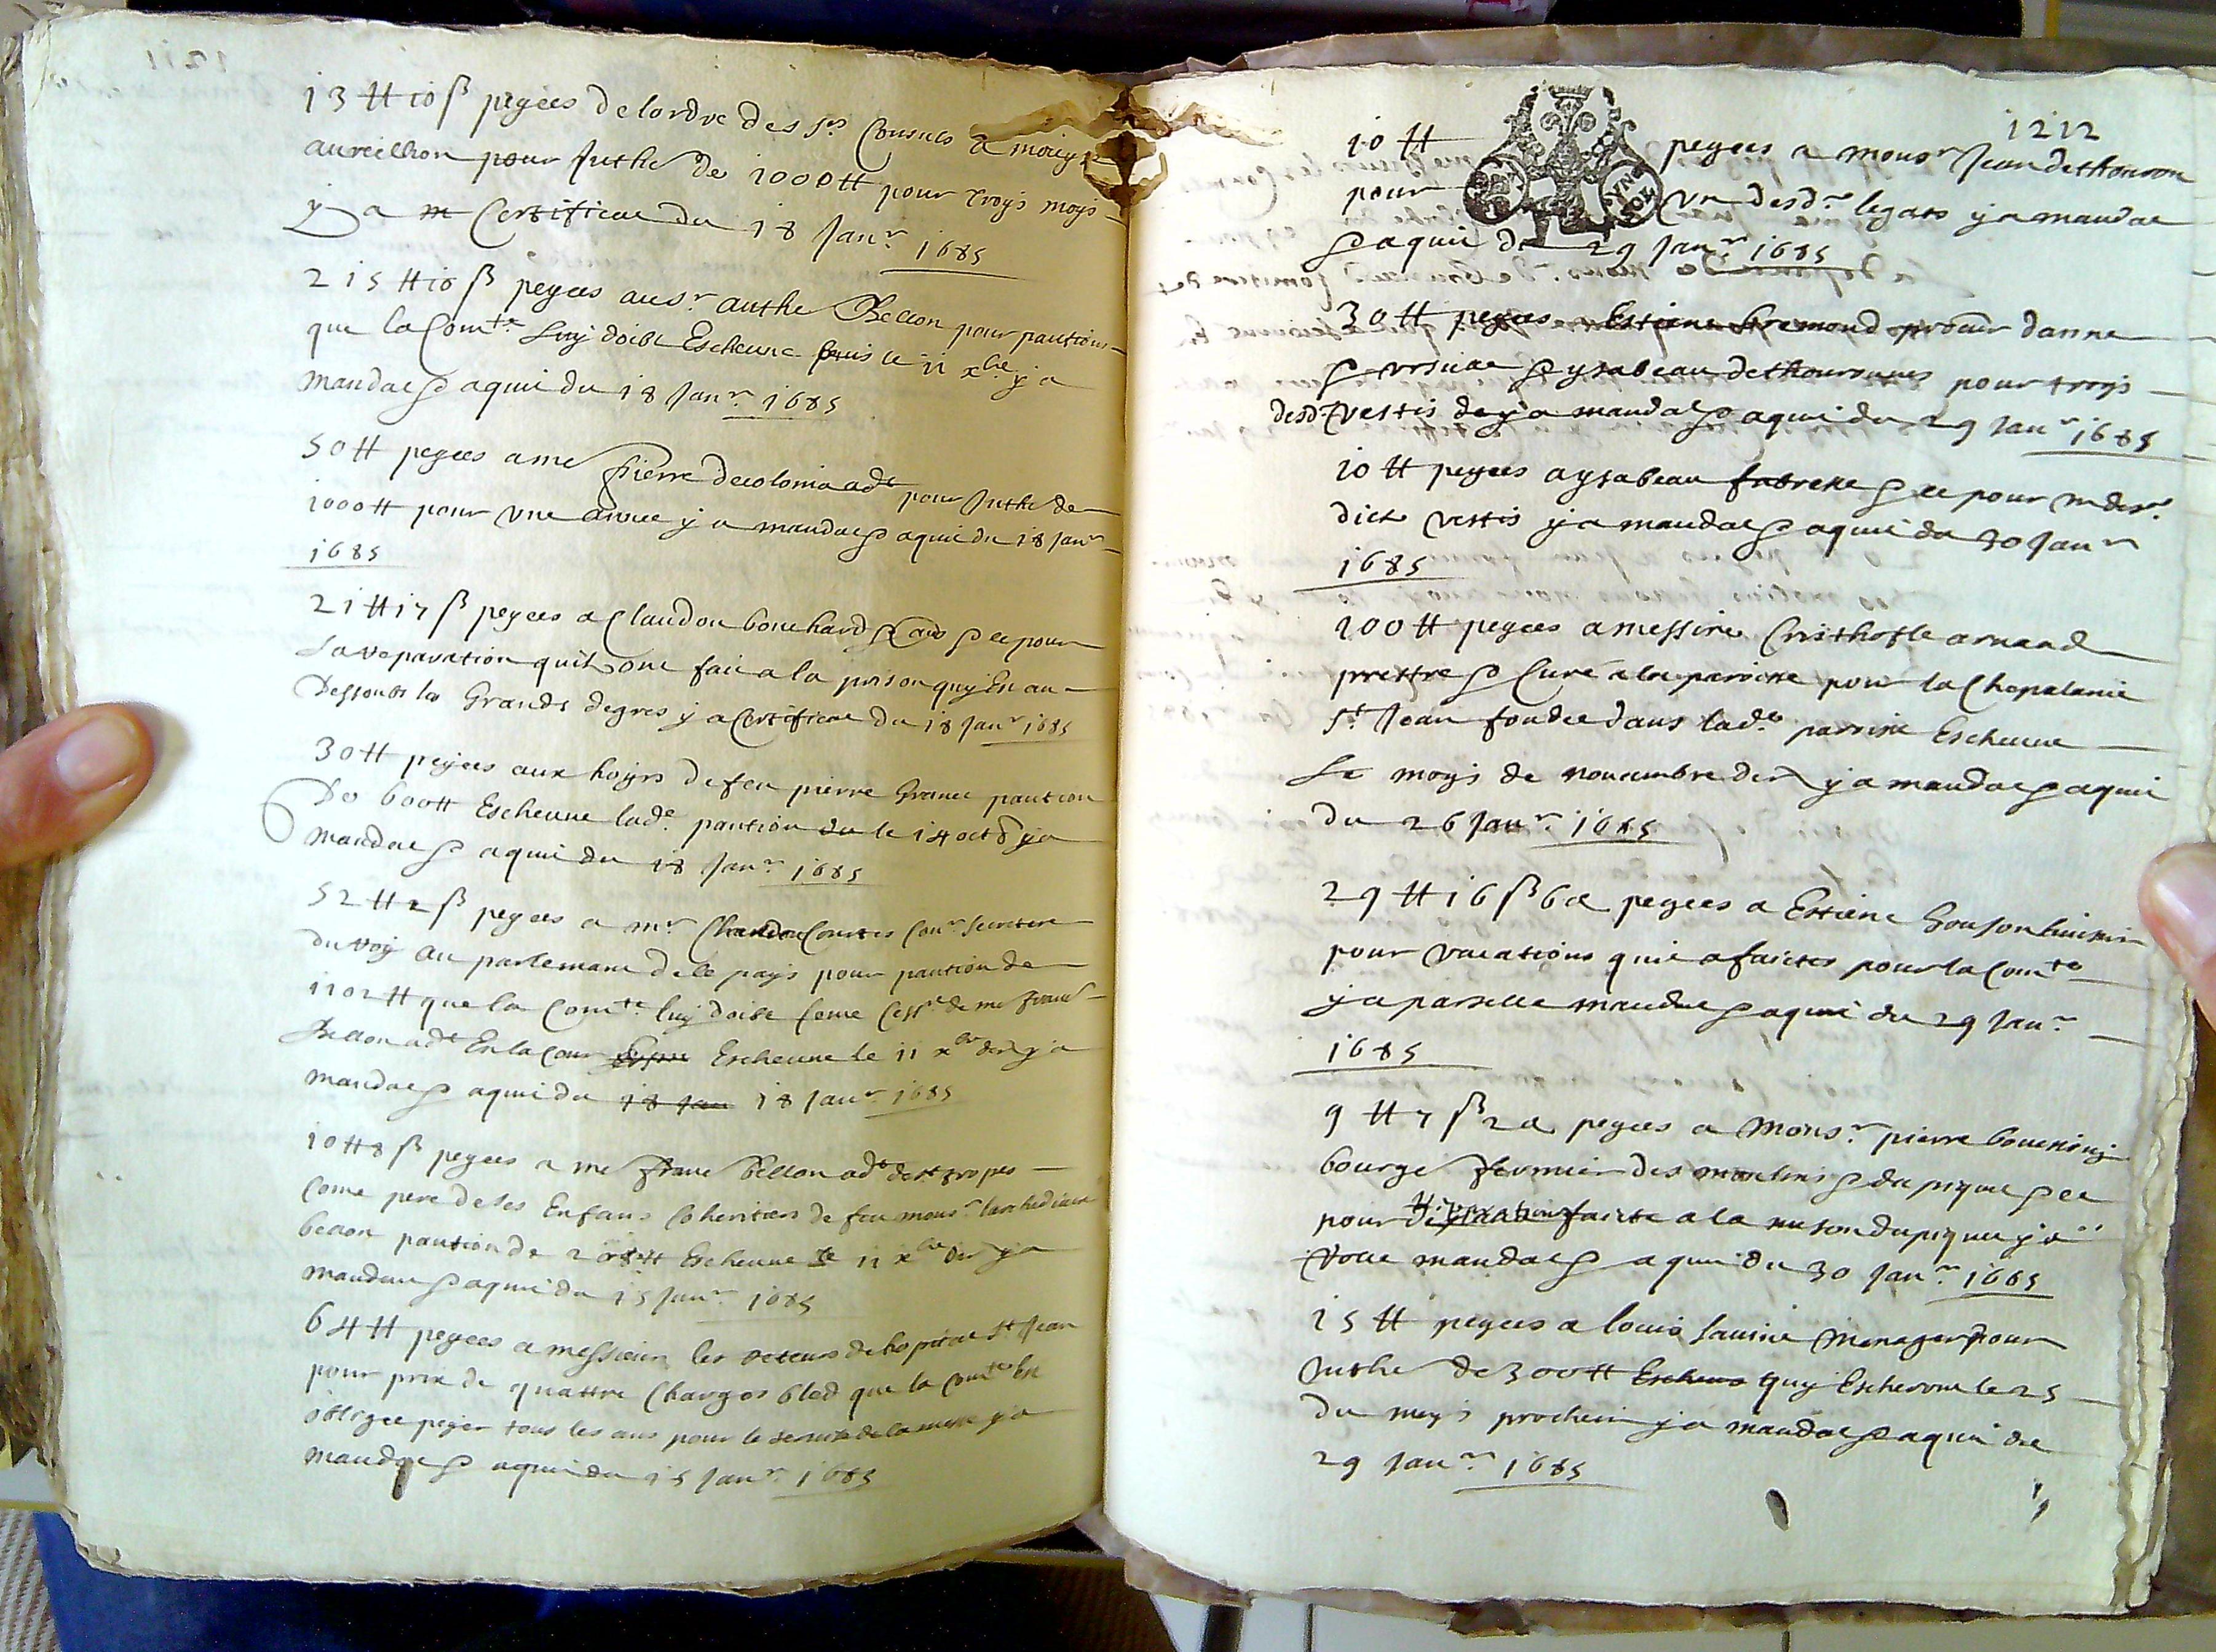 13 tt 10 ß peyées de lordre des Srs Consuls a
aureillhon pour Inthe de 1000 tt pour troys moys
y a m Certificat du 18 Janr 1685
215 tt 10 ß peyées au sr authe Bellon pour pantion
que la Comte luy doibt Escheue le 11 xbre y a
mandat & aquit du 18 Janr 1685
50 tt peyées a me Pierre decolonia adt pour Inthe de
1000 tt pour vne année y a mandat & aquit du 18 Janr
1685
21 tt 17 ß peyées a Claudon bouchard & & ce pour
La reparation quils ont fait a la prison quy Est au
Dessoubs les Grands degres y a Certificat du 18 Janr 1685
30 tt peyées aux hoyrs de feu pierre Granet pantion
De 600 tt Escheue lade pantion du le 14 octb y a
mandat & aquit du 18 Janr 1685
52 tt 2 ß peyées a mr Courtes Conr Secretere
du roy au parlemant de ce pays pour pantion de
1102 tt que la Comte luy doibt Come Cessre de me franc
Bellon adt En la Cour Escheue le 11 xbre der y a
mandat & aquit du 18 Jan 18 Janr 1685
10 tt 8 ß peyées a me franc bellon adt de st tropes
Come pere de ses Enfans Coheritiers de feu monsr larchediacre
bellon pantion de 208 tt Escheue le 11 xbre der y a
mandat & aquit du 15 Janr 1685
64 tt peyées a messieurs les retteurs de lhopital St Jean
pour prix de quattre Charges bled que la Comte Est
obligee peyer tous les ans pour le seruice de la messe y a
mandat & aquit du 15 Janr 1685
1212
10 tt peyées a monsr Jean dethouron
pour vn desdrs legats y a mandat
& aquit du 29 Janr 1685
VN SOL
30 tt peyées a Estiene fremond danne
& vrsule & ysabeau dethouronnes pour troys
desd vestis de y a mandat & aquit du 29 Janr 1685
10 tt peyées a ysabeau fabresse & ce pour vn desd
dict vestis y a mandat & aquit du 30 Janr
1685
100 tt peyées a messire Cristhofle arnaud
prettre & Curé a la paroisse pour la Chapelanie
St Jean fondée dans lade parroisse Escheue
Le moys de nouembre der y a mandat & aquit
du 26 Janr 1685
29 tt 16 ß 6 d peyées a Estiene huissier
pour vacations quil a faictes pour la Comte
y a parselle mandat & aquit du 29 Janr
1685
9 tt 7 ß 2 d peyées a Monsr pierre
bourge fermier des moulins & du piquet & ce
pour reparations faicte a la meson du piquet y a
Rolle mandat & aquit du 30 Janr 1685
15 tt peyées a louis lauine menager pour
Inthe de 300 tt Escheus quy Escheront le 25
du moys prochein y a mandat & aquit du
29 Janr 1685